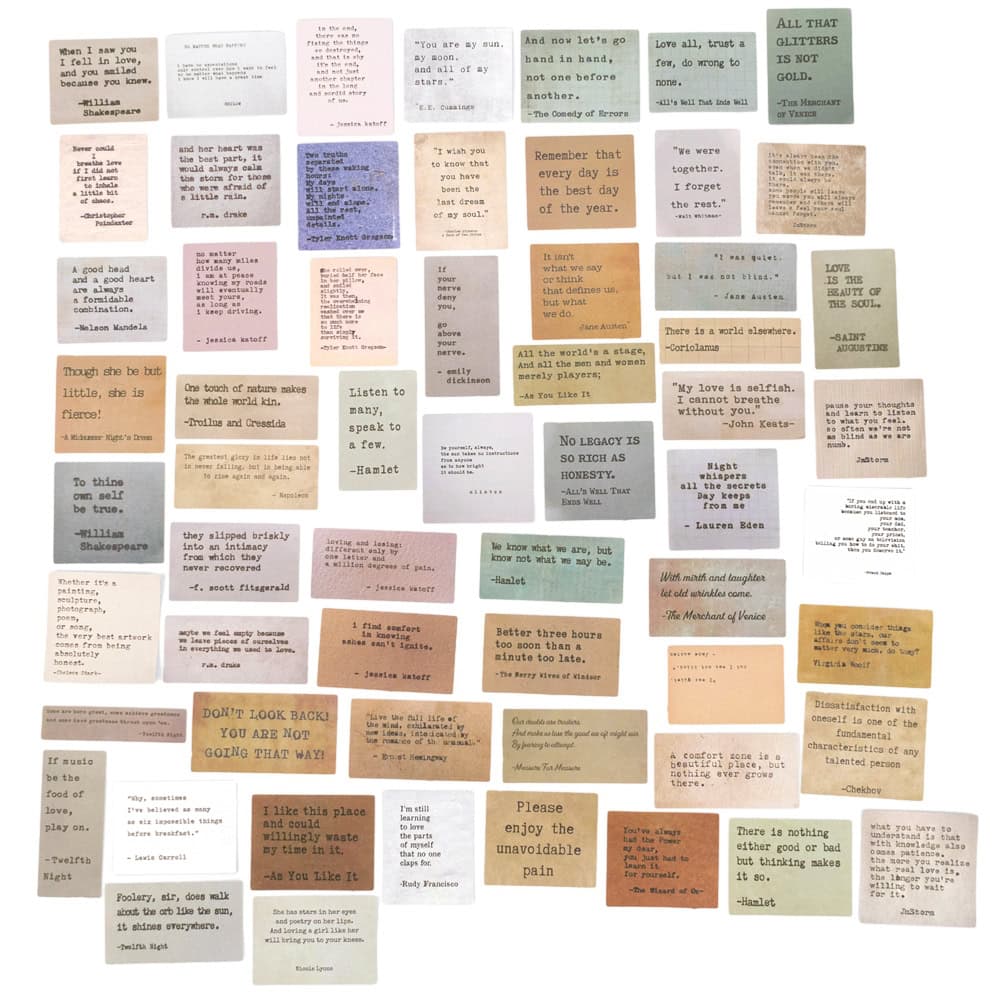 When I saw you
I fell in love,
and you smiled
because you knew.
—William
Shakespeare
no matter what happens
i have no expectations
only control over how i want to feel
so no matter what happens
i know i will have a great time
in the end,
there was no
fixing the things
we destroyed,
and that is why
it's the end,
and not just
another chapter
in the long
and sordid story
of us.
- jessica katoff
"You are my sun.
my moon.
and all of my
stars."
E.E. Cummings
And now let's go
hand in hand,
not one before
another.
-The Comedy of Errors
Love all, trust a
few, do wrong to
none.
-All's Well That Ends Well
ALL THAT
GLITTERS
IS NOT
GOLD.
-THE MERCHANT
OF VENICE
Never could
I
breathe love
if I did not
first learn
to inhale
a little bit
of chaos.
-Christopher
Poindexter
and her heart was
the best part, it
would always calm
the storm for those
who were afraid of
a little rain.
r.m. drake
Two truths
separated
by these waking
hours:
My days
will start alone.
My nights
will end alone.
All the rest,
unpainted
details.
-Tyler Knott Gregson
"I wish you
to know that
you have
been the
last dream
of my soul."
-Charles Dickens
A Tale of Two Cities
Remember that
every day is
the best day
of the year.
"We were
together.
I forget
the rest."
-Walt Whitman-
It's always been the
connection with you,
even when we didn't
talk, it was there,
it could always be
there.
some people will leave
you words you will always
remember and others will
leave a feel your soul
cannot forget.
JmStorm
A good head
and a good heart
are always
a formidable
combination.
—Nelson Mandela
no matter
how many miles
divide us,
i am at peace
knowing my roads
will eventually
meet yours,
as long as
i keep driving.
- jessica katoff
She rolled over,
buried half her face
in her pillow,
and smiled
slightly.
It was then,
the overwhelming
realization
washed over me
that there is
so much more
to life
than simply
surviving it.
-Tyler Knott Gregson-
If
your
nerve
deny
you,
go
above
your
nerve.
- emily
dickinson
It isn't
what we say
or think
that defines us,
but what
we do.
Jane Austen
"I was quiet,
but I was not blind."
- Jane Austen
There is a world elsewhere.
—Coriolanus
LOVE
IS THE
BEAUTY OF
THE SOUL.
—SAINT
AUGUSTINE
Though she be but
little, she is
fierce!
-A Midsummer Night's Dream
One touch of nature makes
the whole world kin.
—Troilus and Cressida
Listen to
many,
speak to
a few.
—Hamlet
All the world's a stage,
And all the men and women
merely players;
—As You Like It
"My love is selfish.
I cannot breathe
without you."
-John Keats-
pause your thoughts
and learn to listen
to what you feel.
so often we're not
as blind as we are
numb.
JmStorm
The greatest glory in life lies not
in never falling, but in being able
to rise again and again.
- Napoleon
Be yourself, always,
the sun takes no instructions
from anyone
as to how bright
it should be.
NO LEGACY IS
SO RICH AS
HONESTY.
-ALL'S WELL THAT
ENDS WELL
Night
whispers
all the secrets
Day keeps
from me
- Lauren Eden
To thine
own self
be true.
—William
Shakespeare
they slipped briskly
into an intimacy
from which they
never recovered
-f. scott fitzgerald
loving and losing:
different only by
one letter and
a million degrees of pain.
- jessica katoff
We know what we are, but
know not what we may be.
—Hamlet
"If you end up with a
boring miserable life
because you listened to
your mom,
your dad,
your teacher,
your priest,
or some guy on television
telling you how to do your shit,
then you deserve it."
-Frank Zappa
With mirth and laughter
let old wrinkles come.
-The Merchant of Venice
Whether it's a
painting,
sculpture,
photograph,
poem,
or song,
the very best artwork
comes from being
absolutely
honest.
maybe we feel empty because
we leave pieces of ourselves
in everything we used to love.
r.m. drake
i find comfort
in knowing
ashes can't ignite.
- jessica katoff
Better three hours
too soon than a
minute too late.
-The Merry Wives of Windsor
When you consider things
like the stars, our
affairs don't seem to
matter very much, do they?
Virginia Woolf
Some are born great, some achieve greatness
and some have greatness thrust upon 'em.
-Twelfth Night
DON'T LOOK BACK!
YOU ARE NOT
GOING THAT WAY!
"Live the full life of
the mind, exhilarated by
new ideas, intoxicated by
the romance of the unusual."
- Ernest Hemingway
Our doubts are traitors
And make us lose the good we oft might win
By fearing to attempt.
-Measure For Measure
Dissatisfaction with
oneself is one of the
fundamental
characteristics of any
talented person
—Chekhov
A comfort zone is a
beautiful place, but
nothing ever grows
there.
If music
be the
food of
love,
play on.
-Twelfth
Night
"Why, sometimes
I've believed as many
as six impossible things
before breakfast."
- Lewis Carroll
I like this place
and could
willingly waste
my time in it.
—As You Like It
I'm still
learning
to love
the parts
of myself
that no one
claps for.
-Rudy Francisco
Please
enjoy the
unavoidable
pain
You've always
had the Power
my dear,
you just had to
learn it
for yourself.
-The Wizard of Oz-
There is nothing
either good or bad
but thinking makes
it so.
—Hamlet
what you have to
understand is that
with knowledge also
comes patience.
the more you realize
what real love is,
the longer you're
willing to wait
for it.
JmStorm
Foolery, sir, does walk
about the orb like the sun,
it shines everywhere.
—Twelfth Night
She has stars in her eyes
and poetry on her lips.
And loving a girl like her
will bring you to your knees.
Nicole Lyons